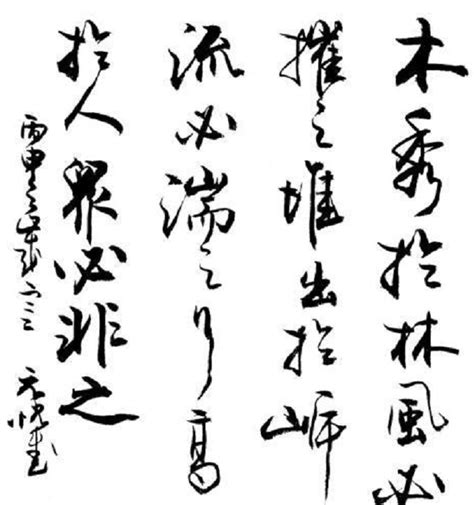 木秀於林風必
摧之堆出於岸
流必湍之行高
於人眾必非之
丙申之歲